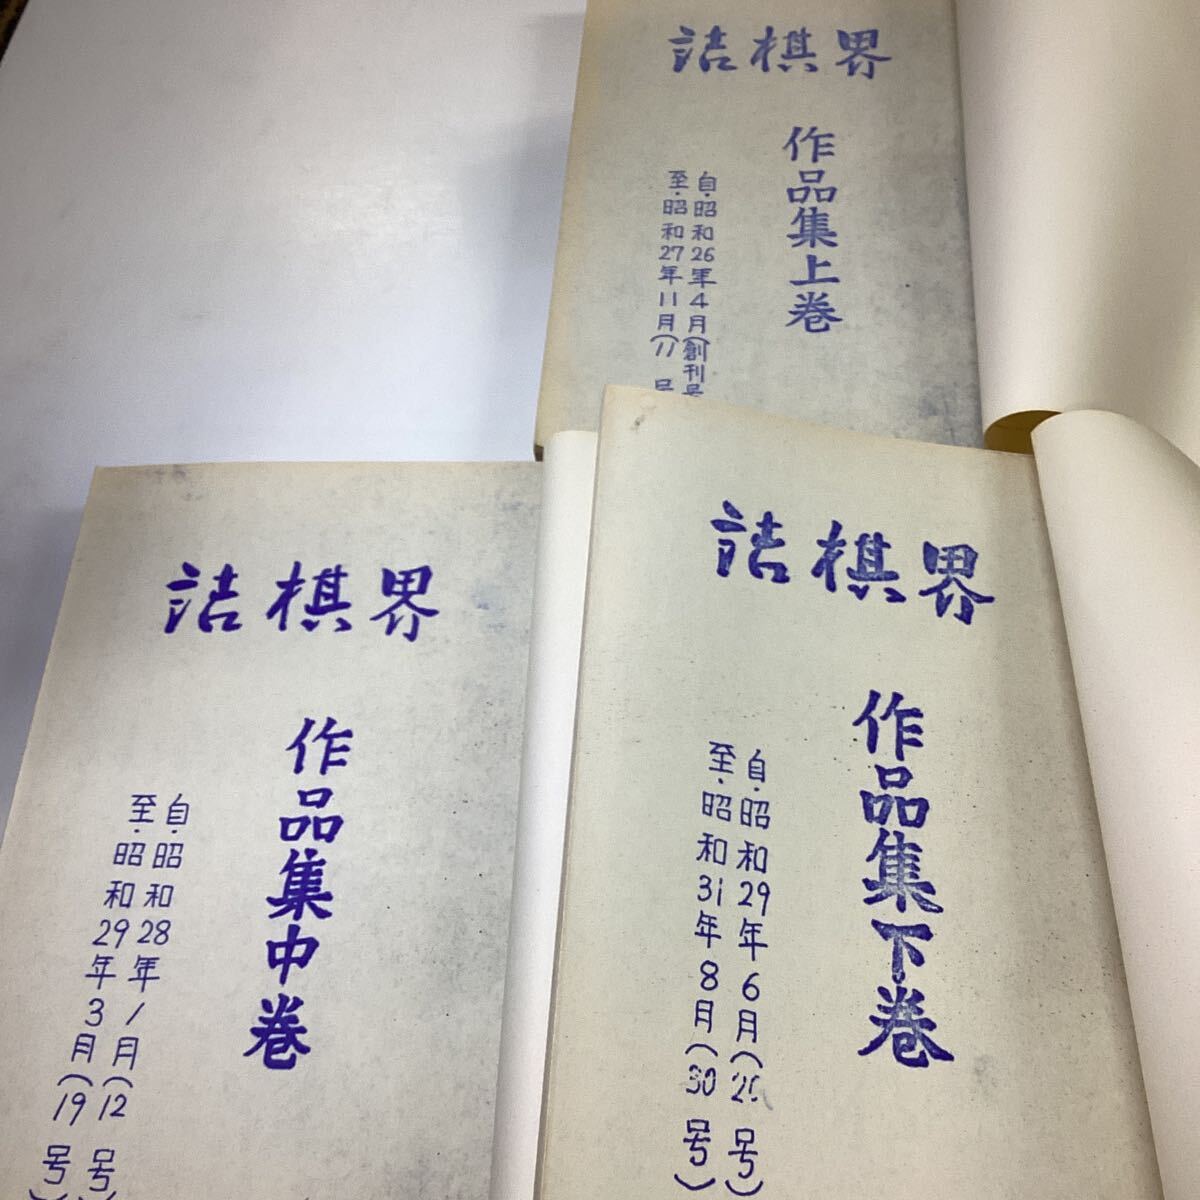 詰棋界
作品集上巻
自・昭和26年4月(創刊号
至・昭和27年11月(11号
詰棋界
作品集中巻
自・昭和28年1月(12号)
至・昭和29年3月(19号)
詰棋界
作品集下巻
自・昭和29年6月(20号)
至・昭和31年8月(30号)